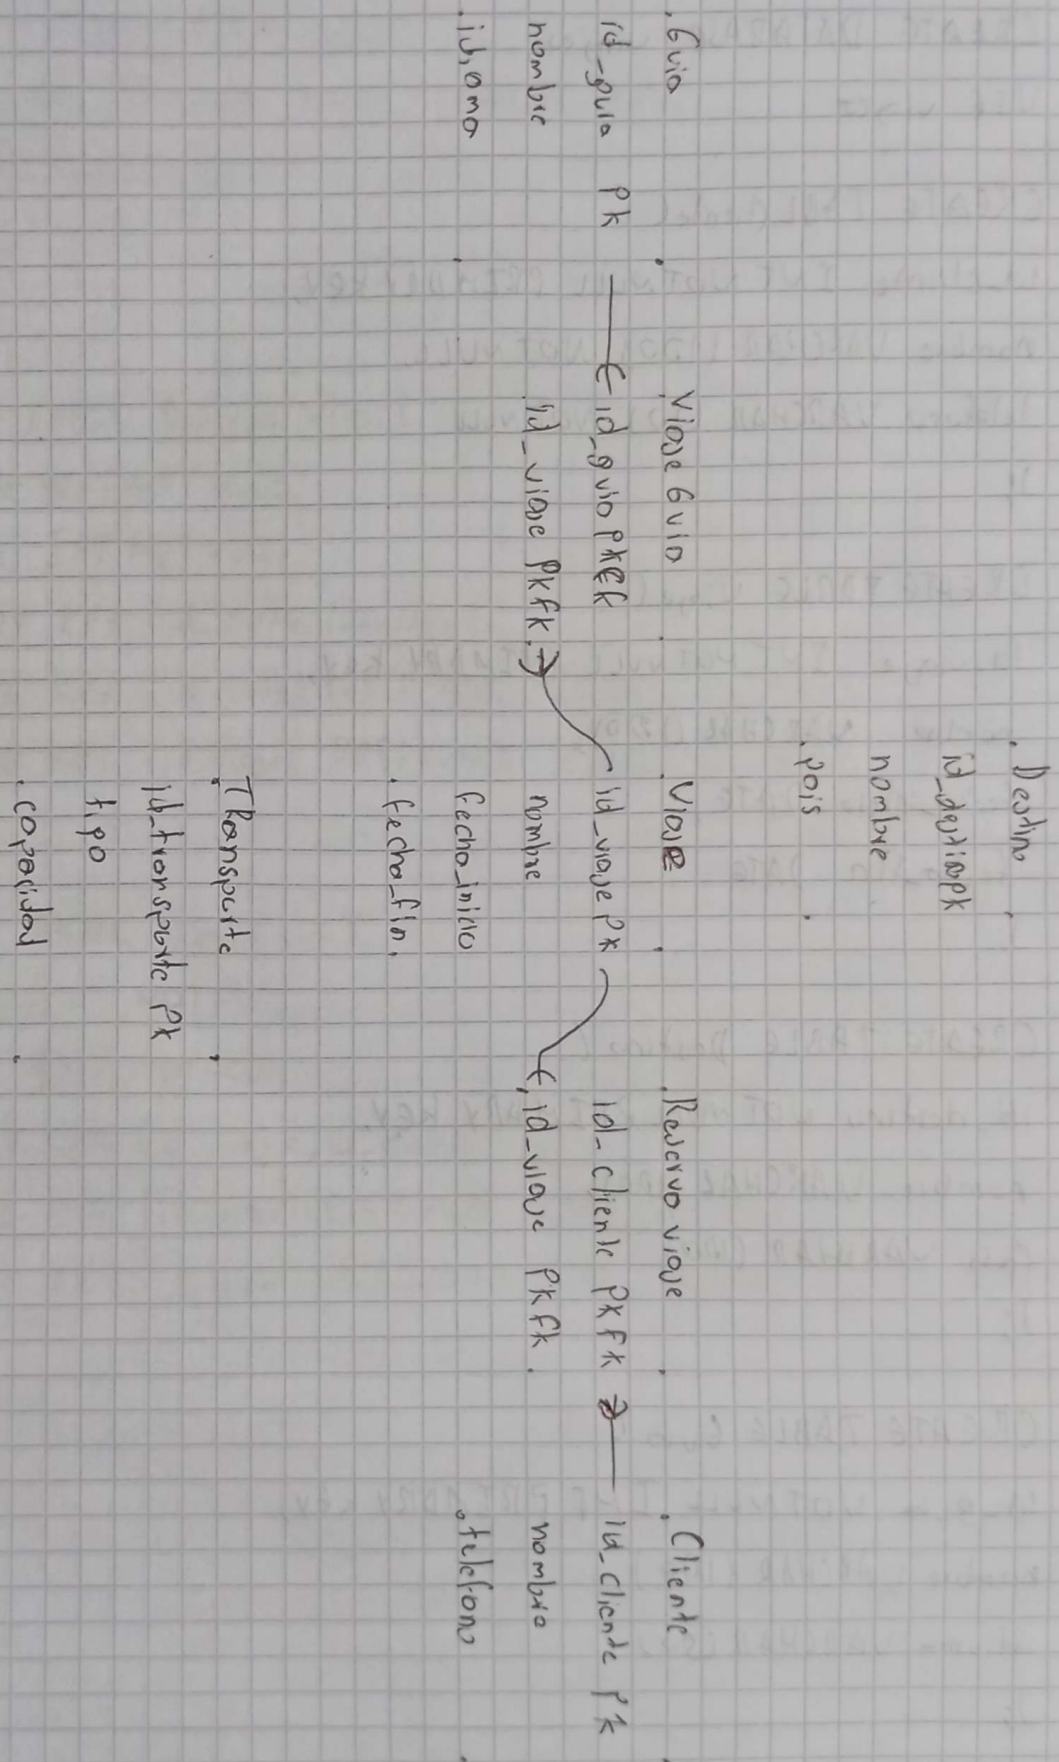 Destino
id_destino pk
nombre
pais
Guia
id_guia pk
nombre
idioma
Viaje Guia
id_guia pk fk
id_viaje pk fk
Viaje
id_viaje pk
nombre
fecha_inicio
fecha_fin
Reserva viaje
id_cliente pk fk
id_viaje pk fk
Cliente
id_cliente pk
nombre
telefono
Transporte
id_transporte pk
tipo
capacidad